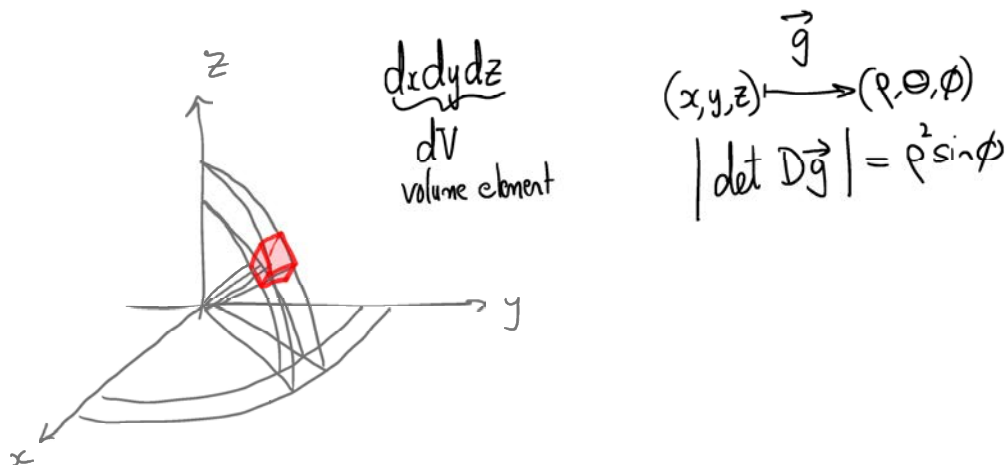 z
dxdydz
dV
volume element
y
x
g⃗
(x,y,z) ↦ (ρ,θ,ϕ)
| det Dg⃗ | = ρ² sinϕ